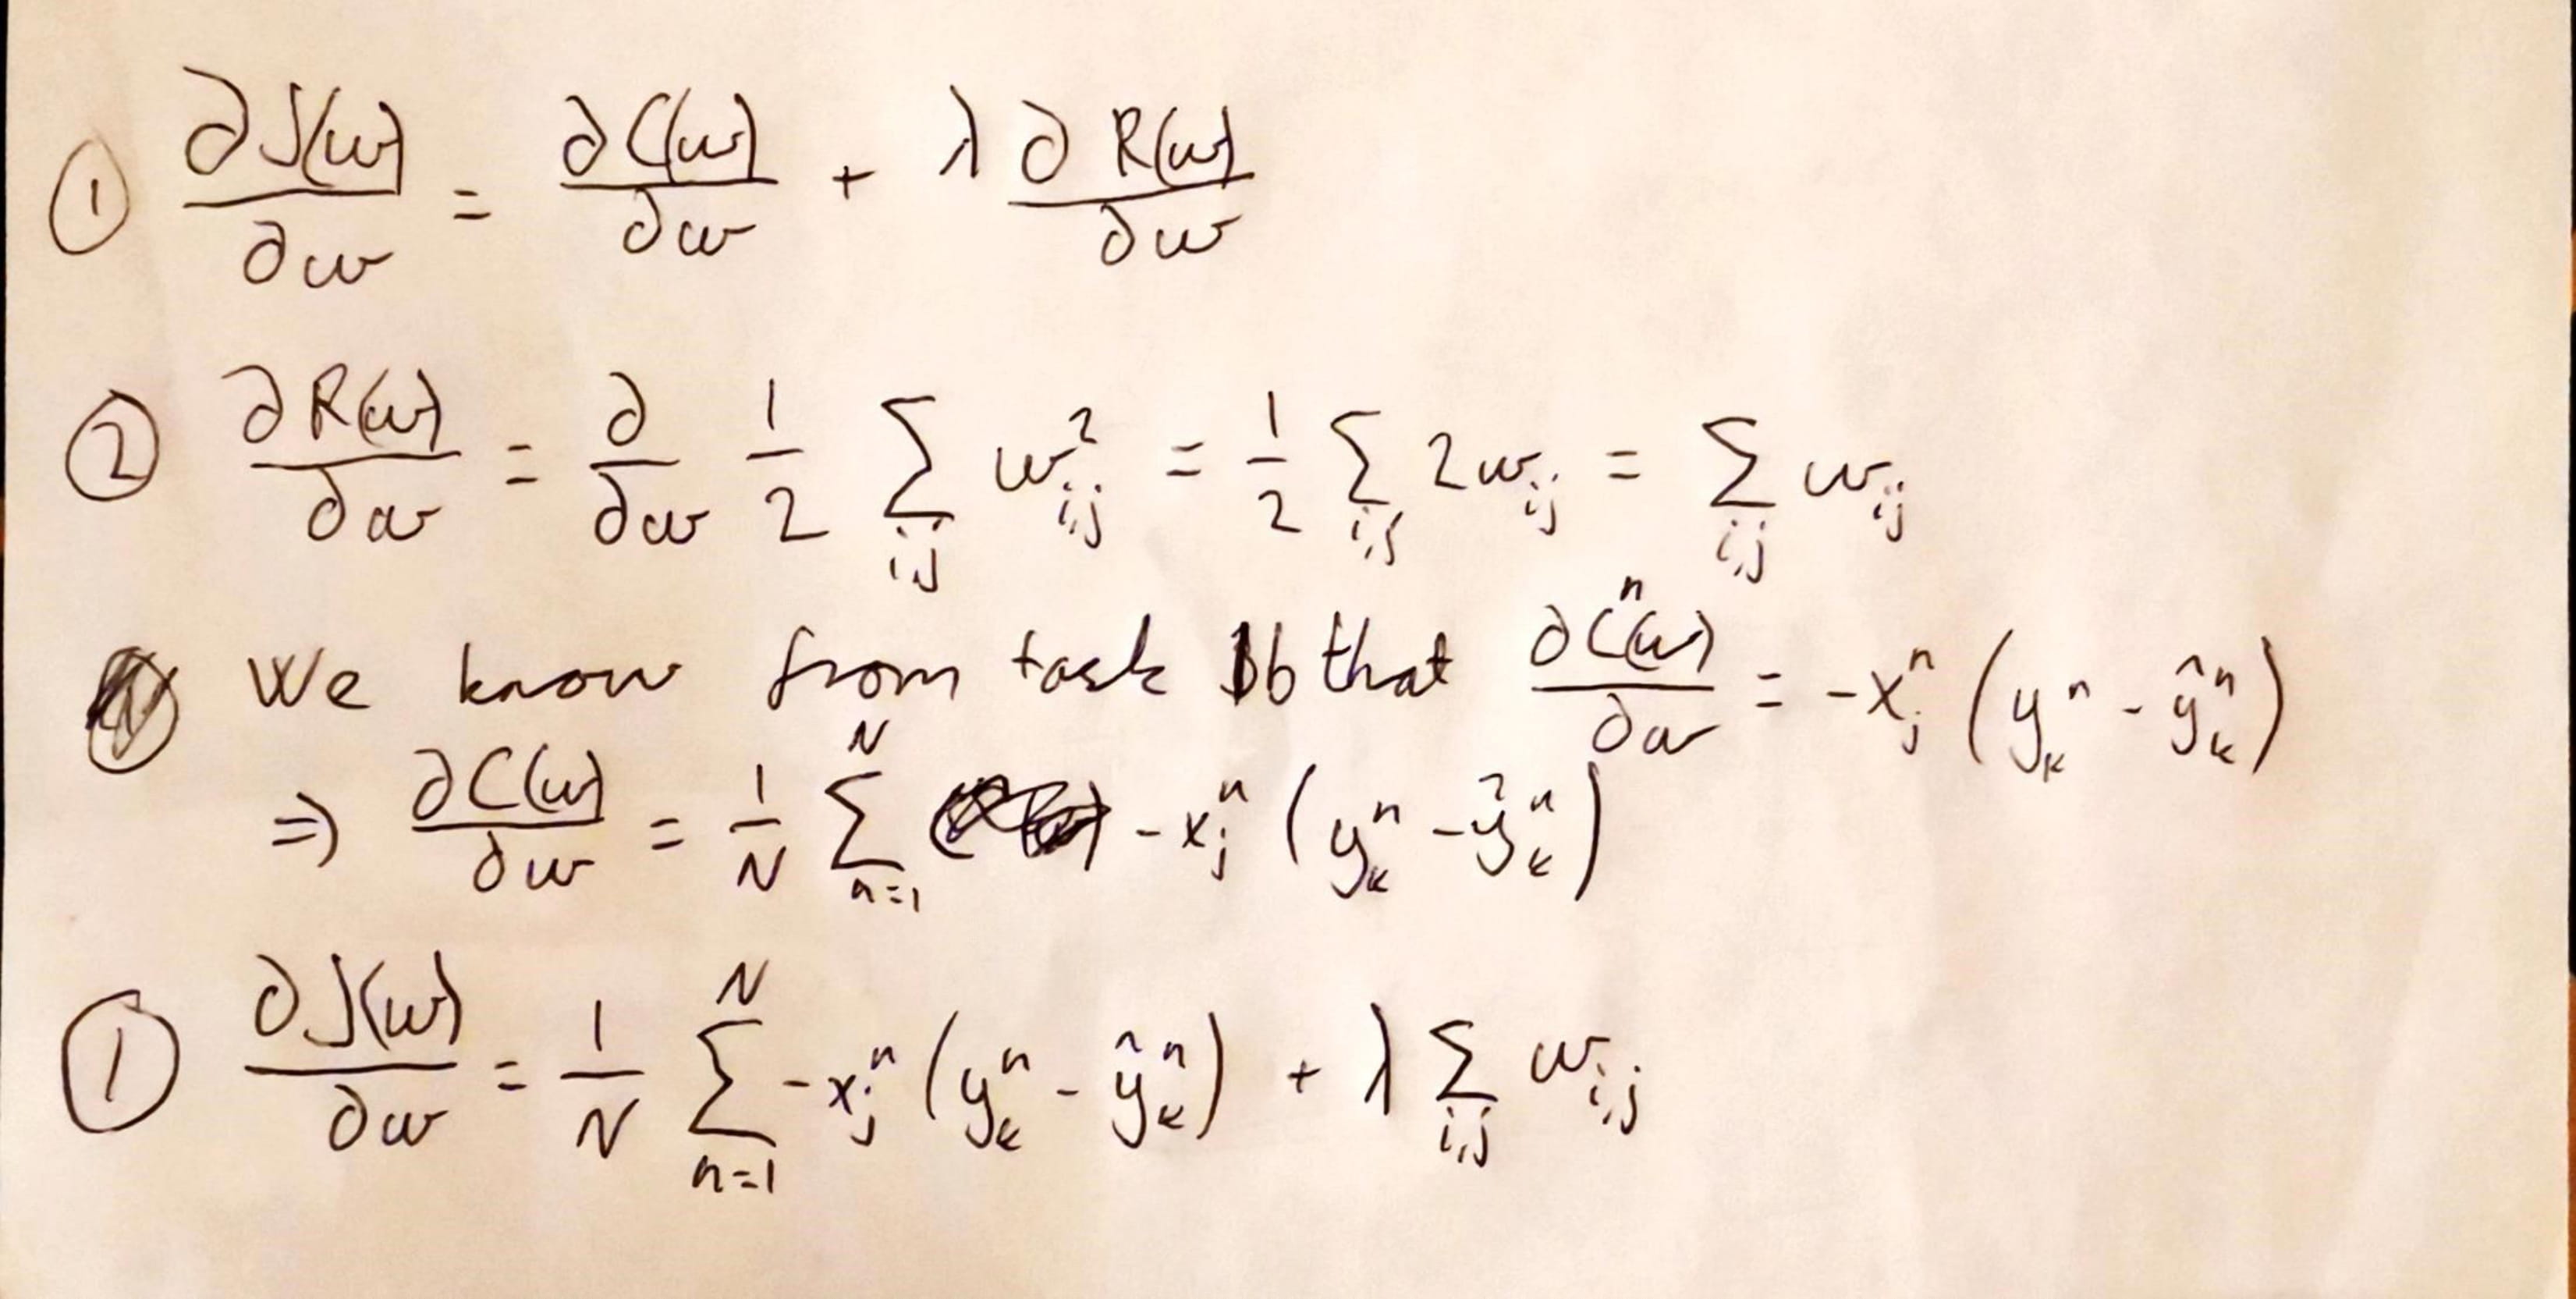 ① ∂J(w)/∂w = ∂C(w)/∂w + λ ∂R(w)/∂w
② ∂R(w)/∂w = ∂/∂w 1/2 ∑_{i,j} w_{i,j}^2 = 1/2 ∑_{i,j} 2w_{i,j} = ∑_{i,j} w_{i,j}
We know from task 1b that ∂C^n(w)/∂w = -x_j^n (y_k^n - ŷ_k^n)
⇒ ∂C(w)/∂w = 1/N ∑_{n=1}^{N} -x_j^n (y_k^n - ŷ_k^n)
① ∂J(w)/∂w = 1/N ∑_{n=1}^{N} -x_j^n (y_k^n - ŷ_k^n) + λ ∑_{i,j} w_{i,j}